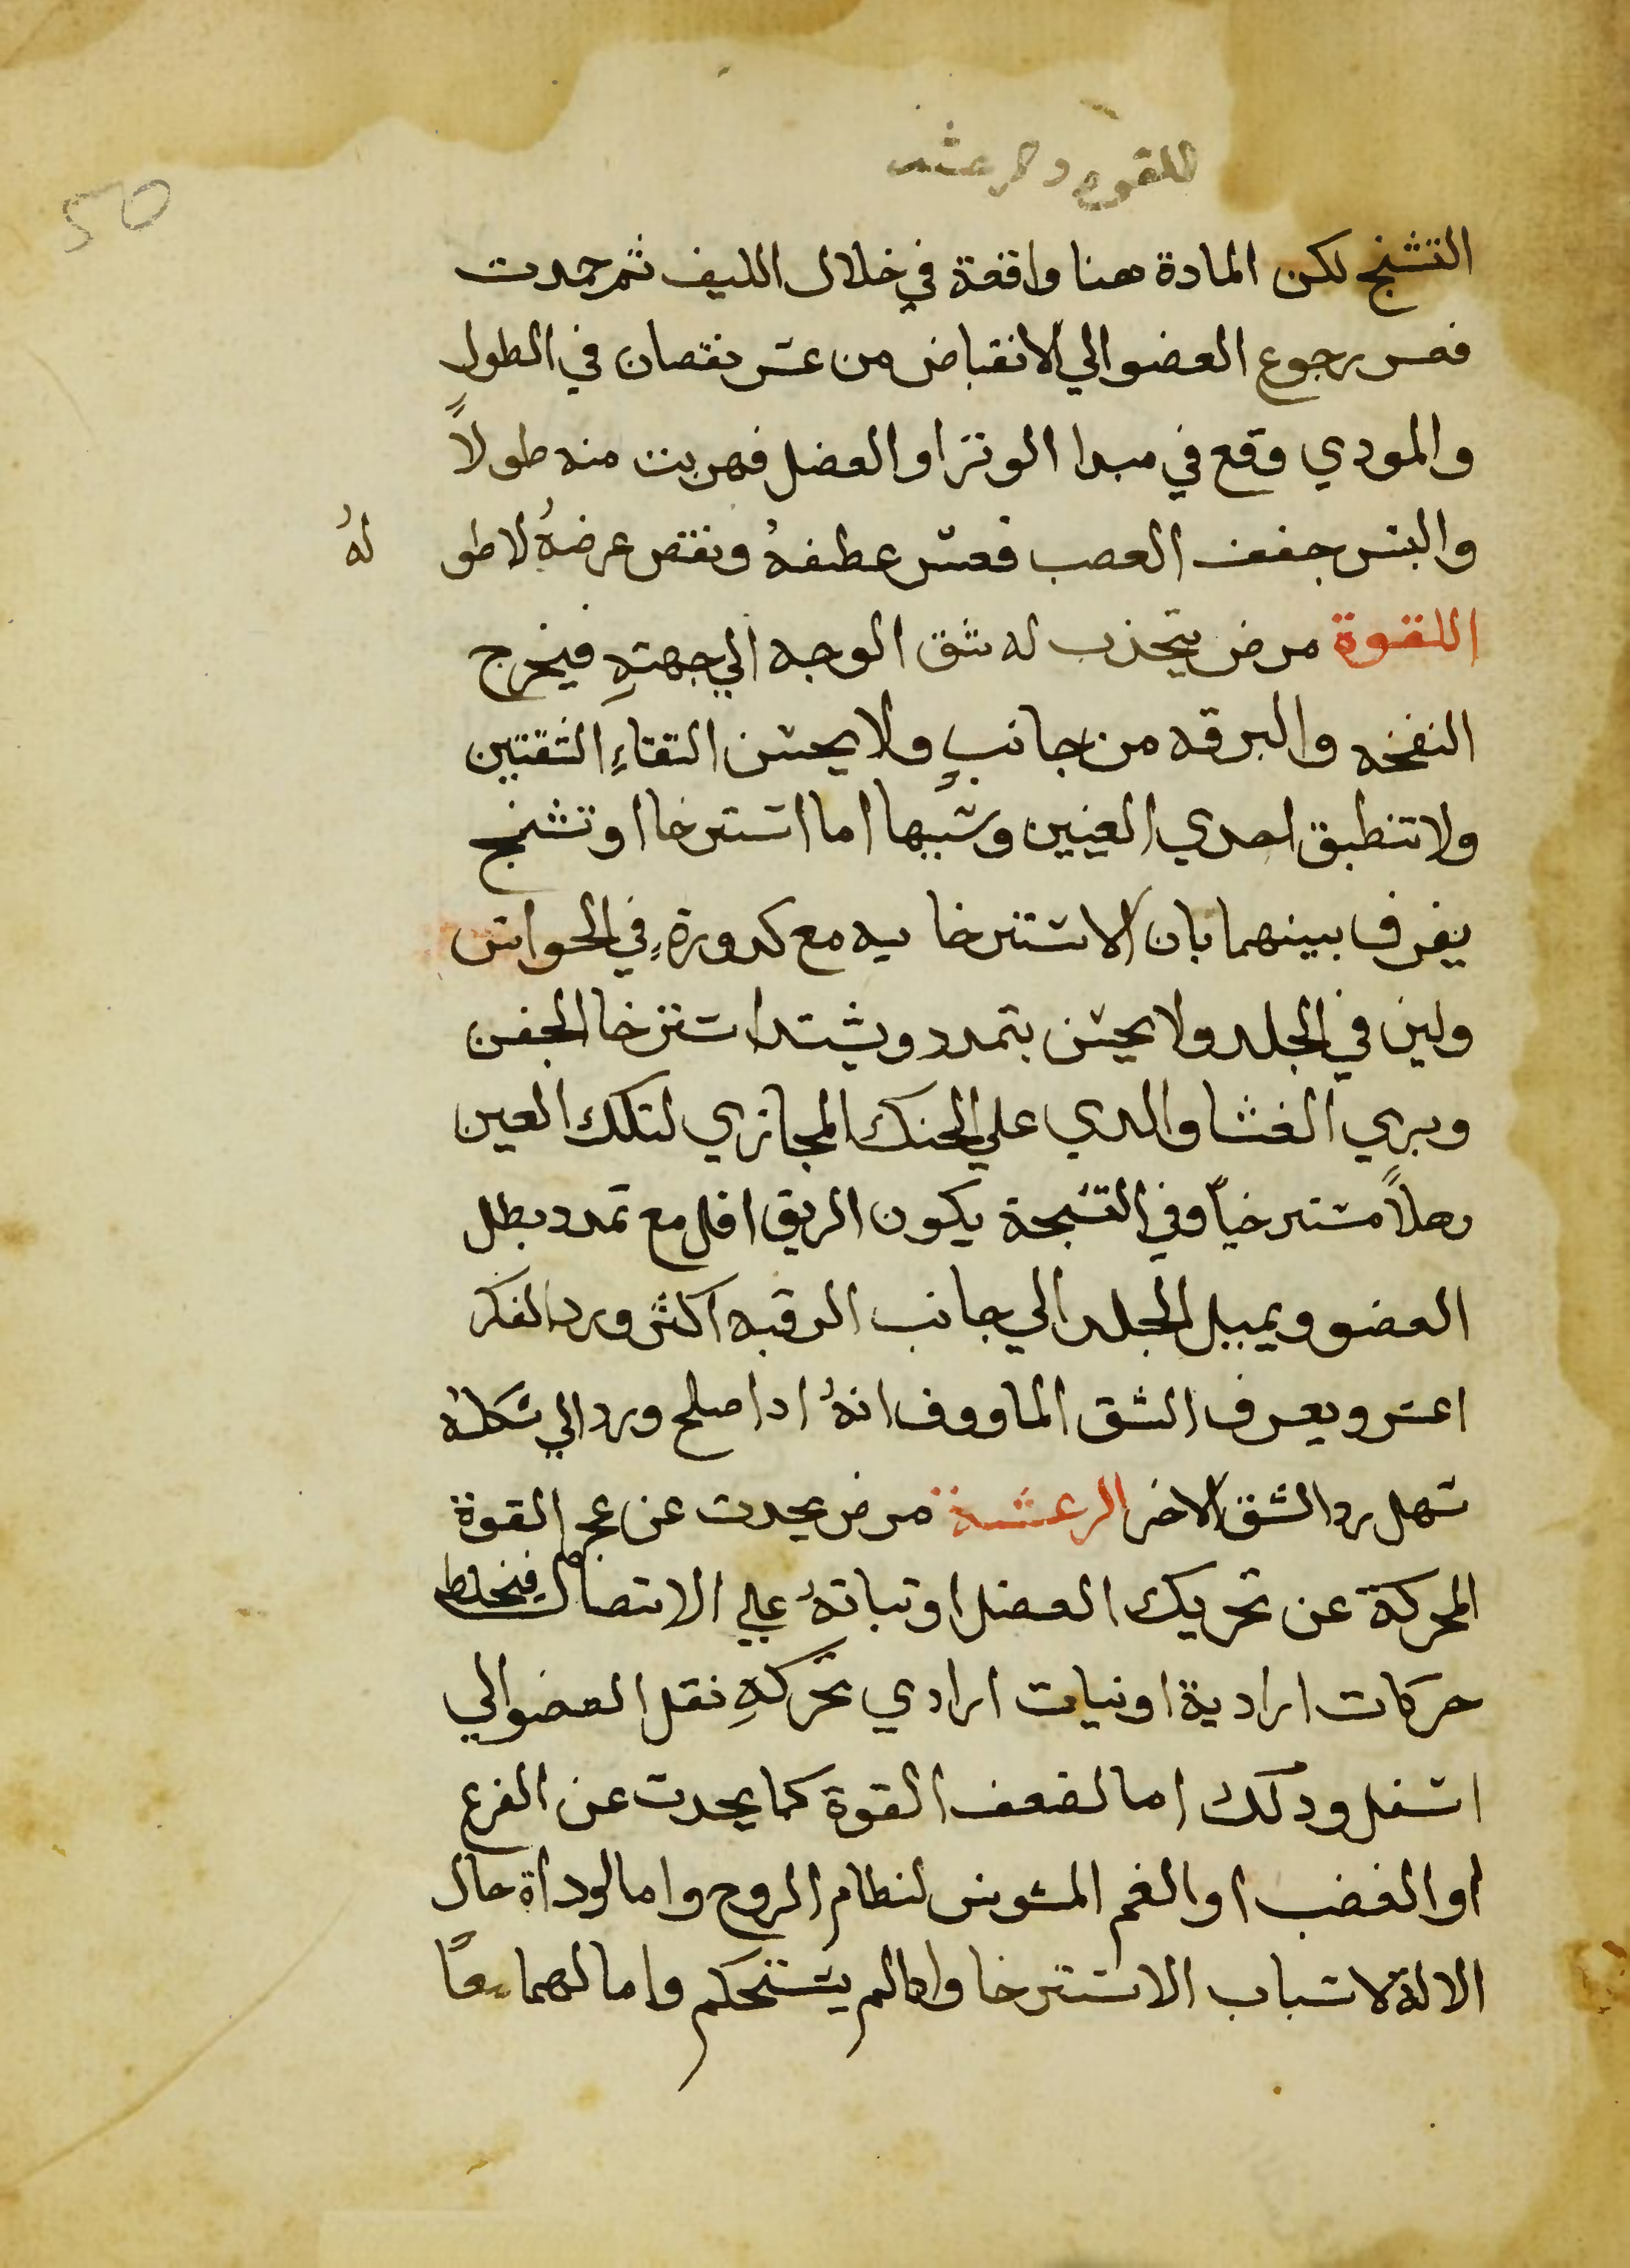 للقوه و الرعشه
50
التشنج لكن المادة هنا واقعة في خلال الليف ثم جمدت
فعسر رجوع العضو الي الانقباض من عسر نقصان في الطول
والمودي وقع في مبدا الوتر او العضل فهربت منه طولاً
واليبس جفف العصب فعسر عطفهُ ونقص عرضهُ لا طو لهُ
اللقوة مرض يتجذب له شق الوجه الي جهتهِ فيخرج
النفخه والبزقه من جانبٍ ولا يحسن التقاءِ الشفتين
ولا تنطبق احدي العينين وسببها اما استرخا او تشنج
يفرف بينهما بان الاسترخا ييه مع كدورةٍ في الحواس
ولين في الجلد ولا يحس بتمدد ويشتد استرخا الجفن
ويري الغشا والدي علي الحنك المجازي لتلك العين
رهلاً مسترخياً وفي التشنجة يكون الريق اقل مع تمدد بطل
العضو ويميل الجلد الي جانب الرقبه اكثر ورد الفكر
اعسر ويعرف الشق الماووف انهُ ادا صلح ورد الي شكله
سهل رد الشق الاخر الرعشة مرض يحدث عن عجز القوة
المحركة عن تحريك العضل او ثباتهُ علي الاتصال فيختلط
حركات ارادية او نيات ارادي تحركهِ نقل العضو الي
اسفل ودلك اما لضعف القوة كما يحدث عن الفزع
او الغضب او الغم المشوش لنظام الروح واما لوداة حال
الالة لاسباب الاسترخا وادا لم يستحكم واما لهما معاً